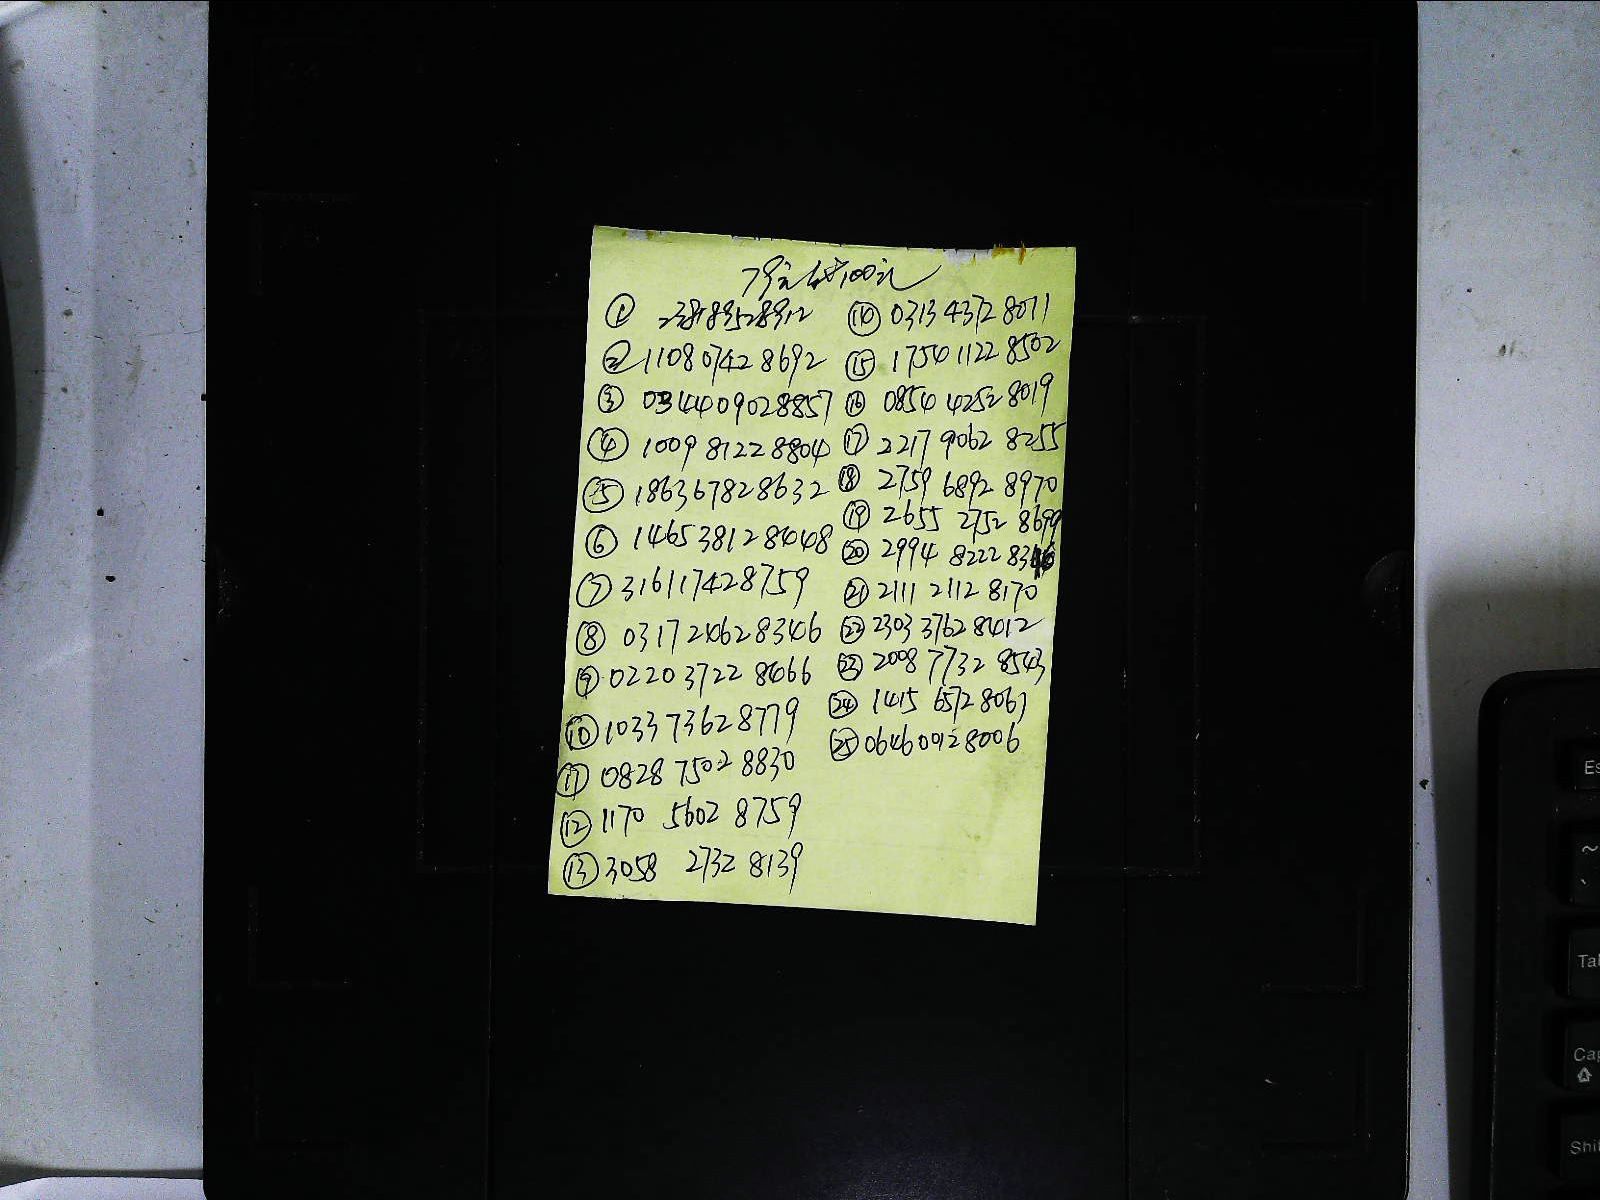 79元代100元
① 238189528912
② 110807428692
③ 034409028857
④ 1009 8122 8804
⑤ 186367828632
⑥ 1465 3812 8448
⑦ 316117428759
⑧ 0317 21628346
⑨ 0220 3722 8466
⑩ 1033 7362 8779
⑪ 0828 7502 8830
⑫ 1170 5602 8759
⑬ 3058 2732 8139
⑭ 0313 4372 8011
⑮ 1754 1122 8502
⑯ 0854 4252 8019
⑰ 2217 9062 8255
⑱ 2759 6892 8970
⑲ 2655 2752 8699
⑳ 2994 8222
㉑ 2111 2112 8170
㉒ 2303 3762 8412
㉓ 2008 7732 8543
㉔ 1415 6572 8067
㉕ 064600128006
Es
~
Ta
Cap
Shi